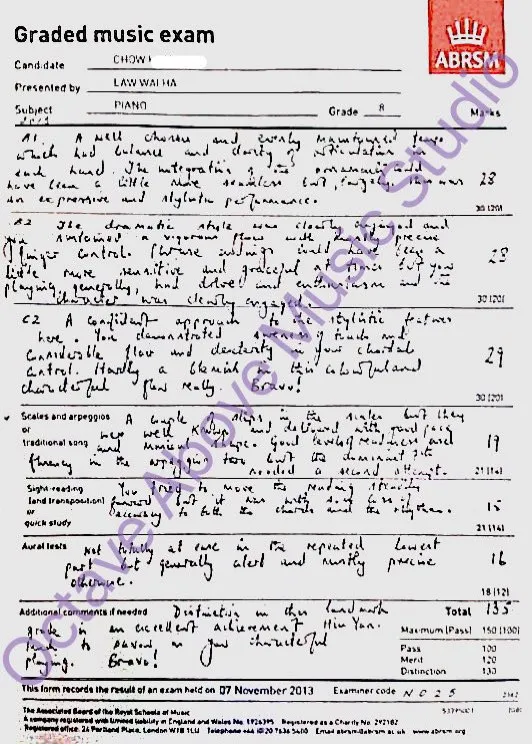 Graded music exam
ABRSM
Candidate CHOW
Presented by LAW WAI HA
Subject PIANO Grade 8 Marks
A1 A well chosen and evenly maintained tempo
which had balance and clarity of articulation in
each hand. The integration of ornaments could
have been a little more seamless but, largely, this was 28
an expressive and stylistic performance.
30 (20)
A2 The dramatic style was clearly engaged and
you sustained a vigorous flow with mostly precise
finger control. Phrase endings could have been a 28
little more sensitive and graceful at times but your
playing, generally, had drive and enthusiasm and the
character was clearly engaged.
30 (20)
C2 A confident approach to the stylistic features
here. You demonstrated awareness of touch and
considerable flair and dexterity in your chordal 29
control. Hardly a blemish in this colourful and
characterful flow really. Bravo!
30 (20)
Scales and arpeggios A couple slips in the scales but they
or were well known and delivered with good pace
traditional song and musical shape. Good level of readiness and 19
fluency in the arpeggios too but the dominant 7ths
needed a second attempt. 21 (14)
Sight-reading You tried to move the reading steadily
(and transposition) forward but it was with some loss of
or accuracy to both the chords and the rhythm. 15
quick study 21 (14)
Aural tests Not totally at ease in the repeated lowest
part but generally alert and mostly precise 16
otherwise.
18 (12)
Additional comments if needed Distinction in this landmark Total 135
grade is an excellent achievement Hiu Yan. Maximum (Pass) 150 (100)
to your characterful Pass 100
playing. Bravo! Merit 120
Distinction 130
This form records the result of an exam held on 07 November 2013 Examiner code N025
The Associated Board of the Royal Schools of Music
A company registered with limited liability in England and Wales No. 1926395 Registered as a Charity No. 292182
Registered office: 24 Portland Place, London W1B 1LU Telephone +44 (0)20 7636 5400 Email abrsm@abrsm.ac.uk www.abrsm.org
Octave Above Music Studio